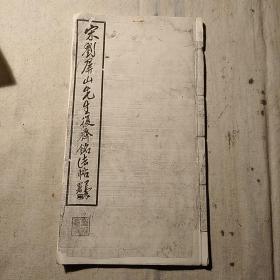 宋劉屏山先生復齋銘法帖